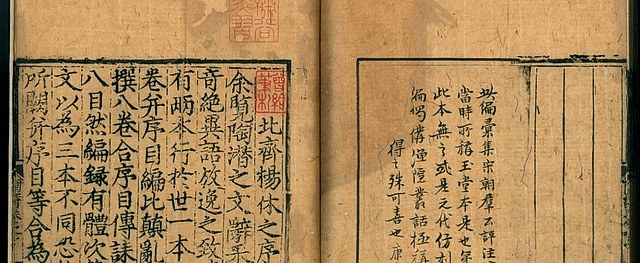 此編彙集宋朝羣公評注
當時所稱玉堂本是也
此本無之或是元代仔刻
漁隱叢話極
得之殊可喜也康
北齊楊休之序
余覽陶潛之文辭采
奇絕異語放逸之致
有兩本行於世一本
卷并序目編比顛亂
撰八卷合序目傳誄
八目然編錄有體次
文以為三本不同恐
所闕并序目等合為